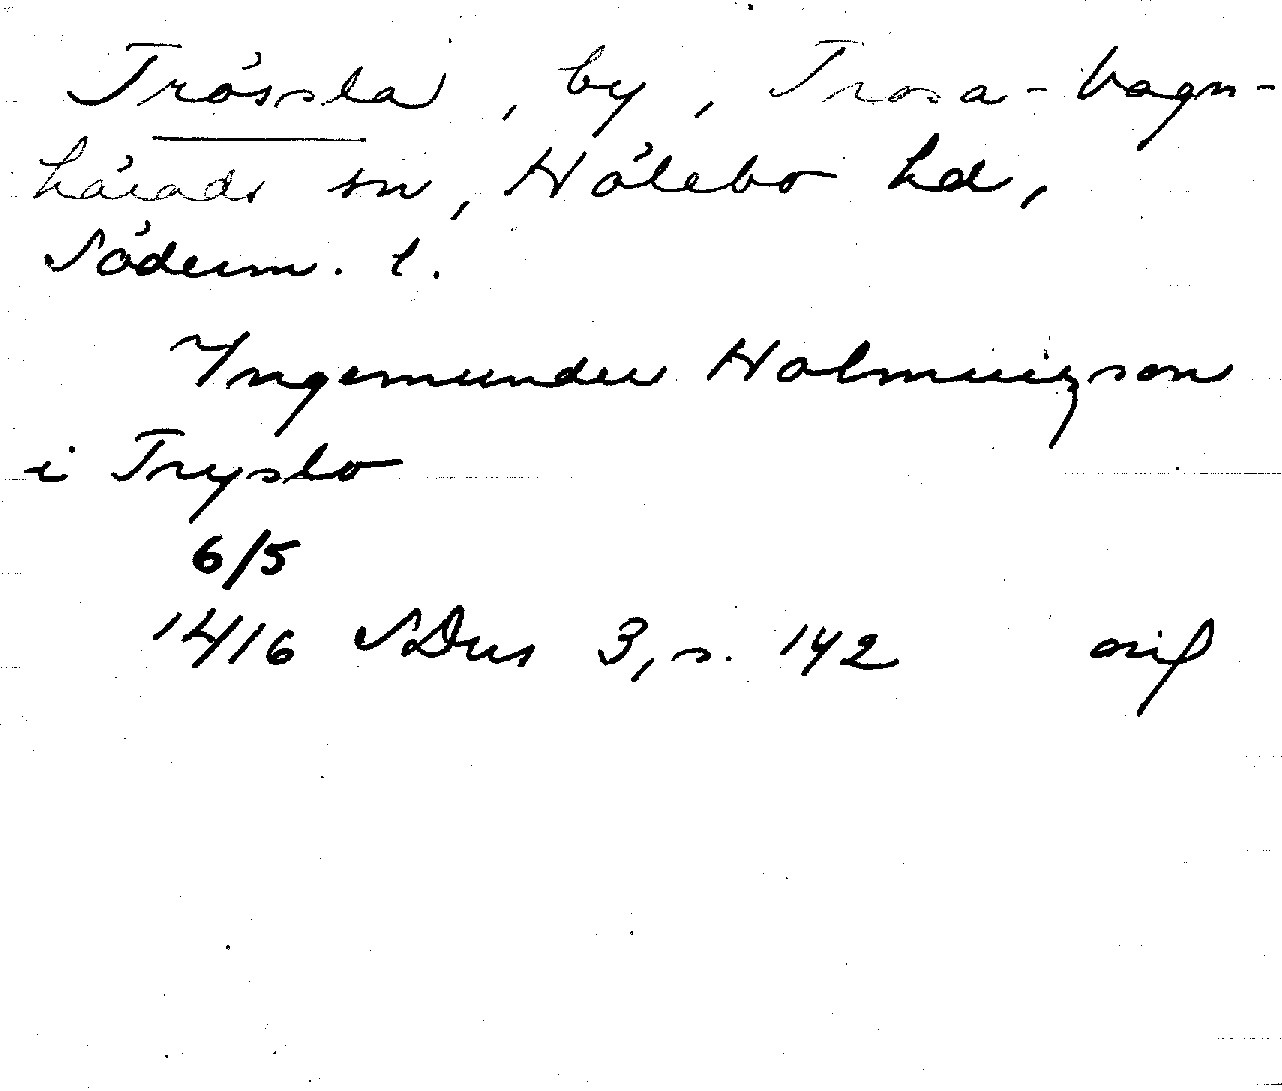 Trössla, by, Trosa-Vagn-
härads sn, Hölebo hd,
Söderm. l.
Ingemunder Holmwigson
i Tryslo
6/5
1416 SDns 3, s. 142 orig